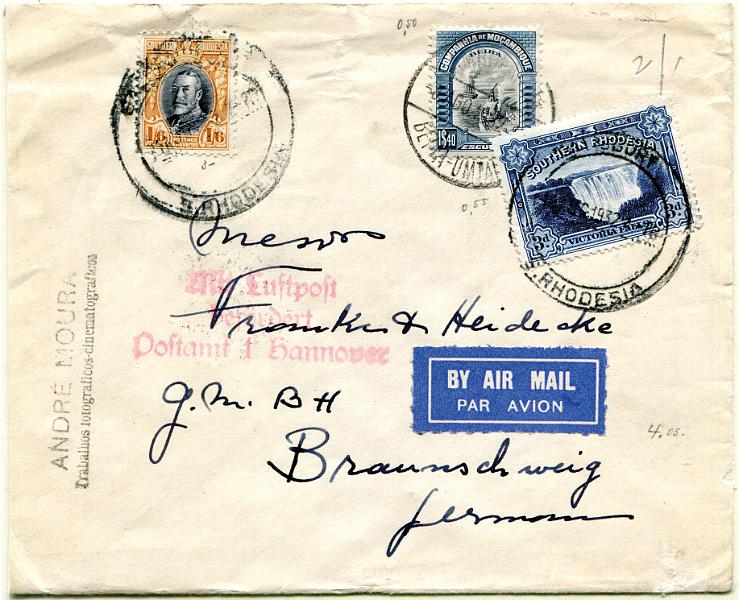 0,50
2/1
SOUTHERN RHODESIA
1/6 1/6
POSTAGE
S. RHODESIA
COMPANHIA DE MOÇAMBIQUE
BEIRA
1$40
BEIRA-UMTALI
SOUTHERN RHODESIA
3d 3d
VICTORIA FALLS
S. RHODESIA
0,55
Messrs
Mit Luftpost
befördert
Postamt 1 Hannover
Franke & Heidecke
G.M.BH
Braunschweig
Germany
BY AIR MAIL
PAR AVION
4.05.
ANDRÉ MOURA
Trabalhos fotograficos-cinematograficos